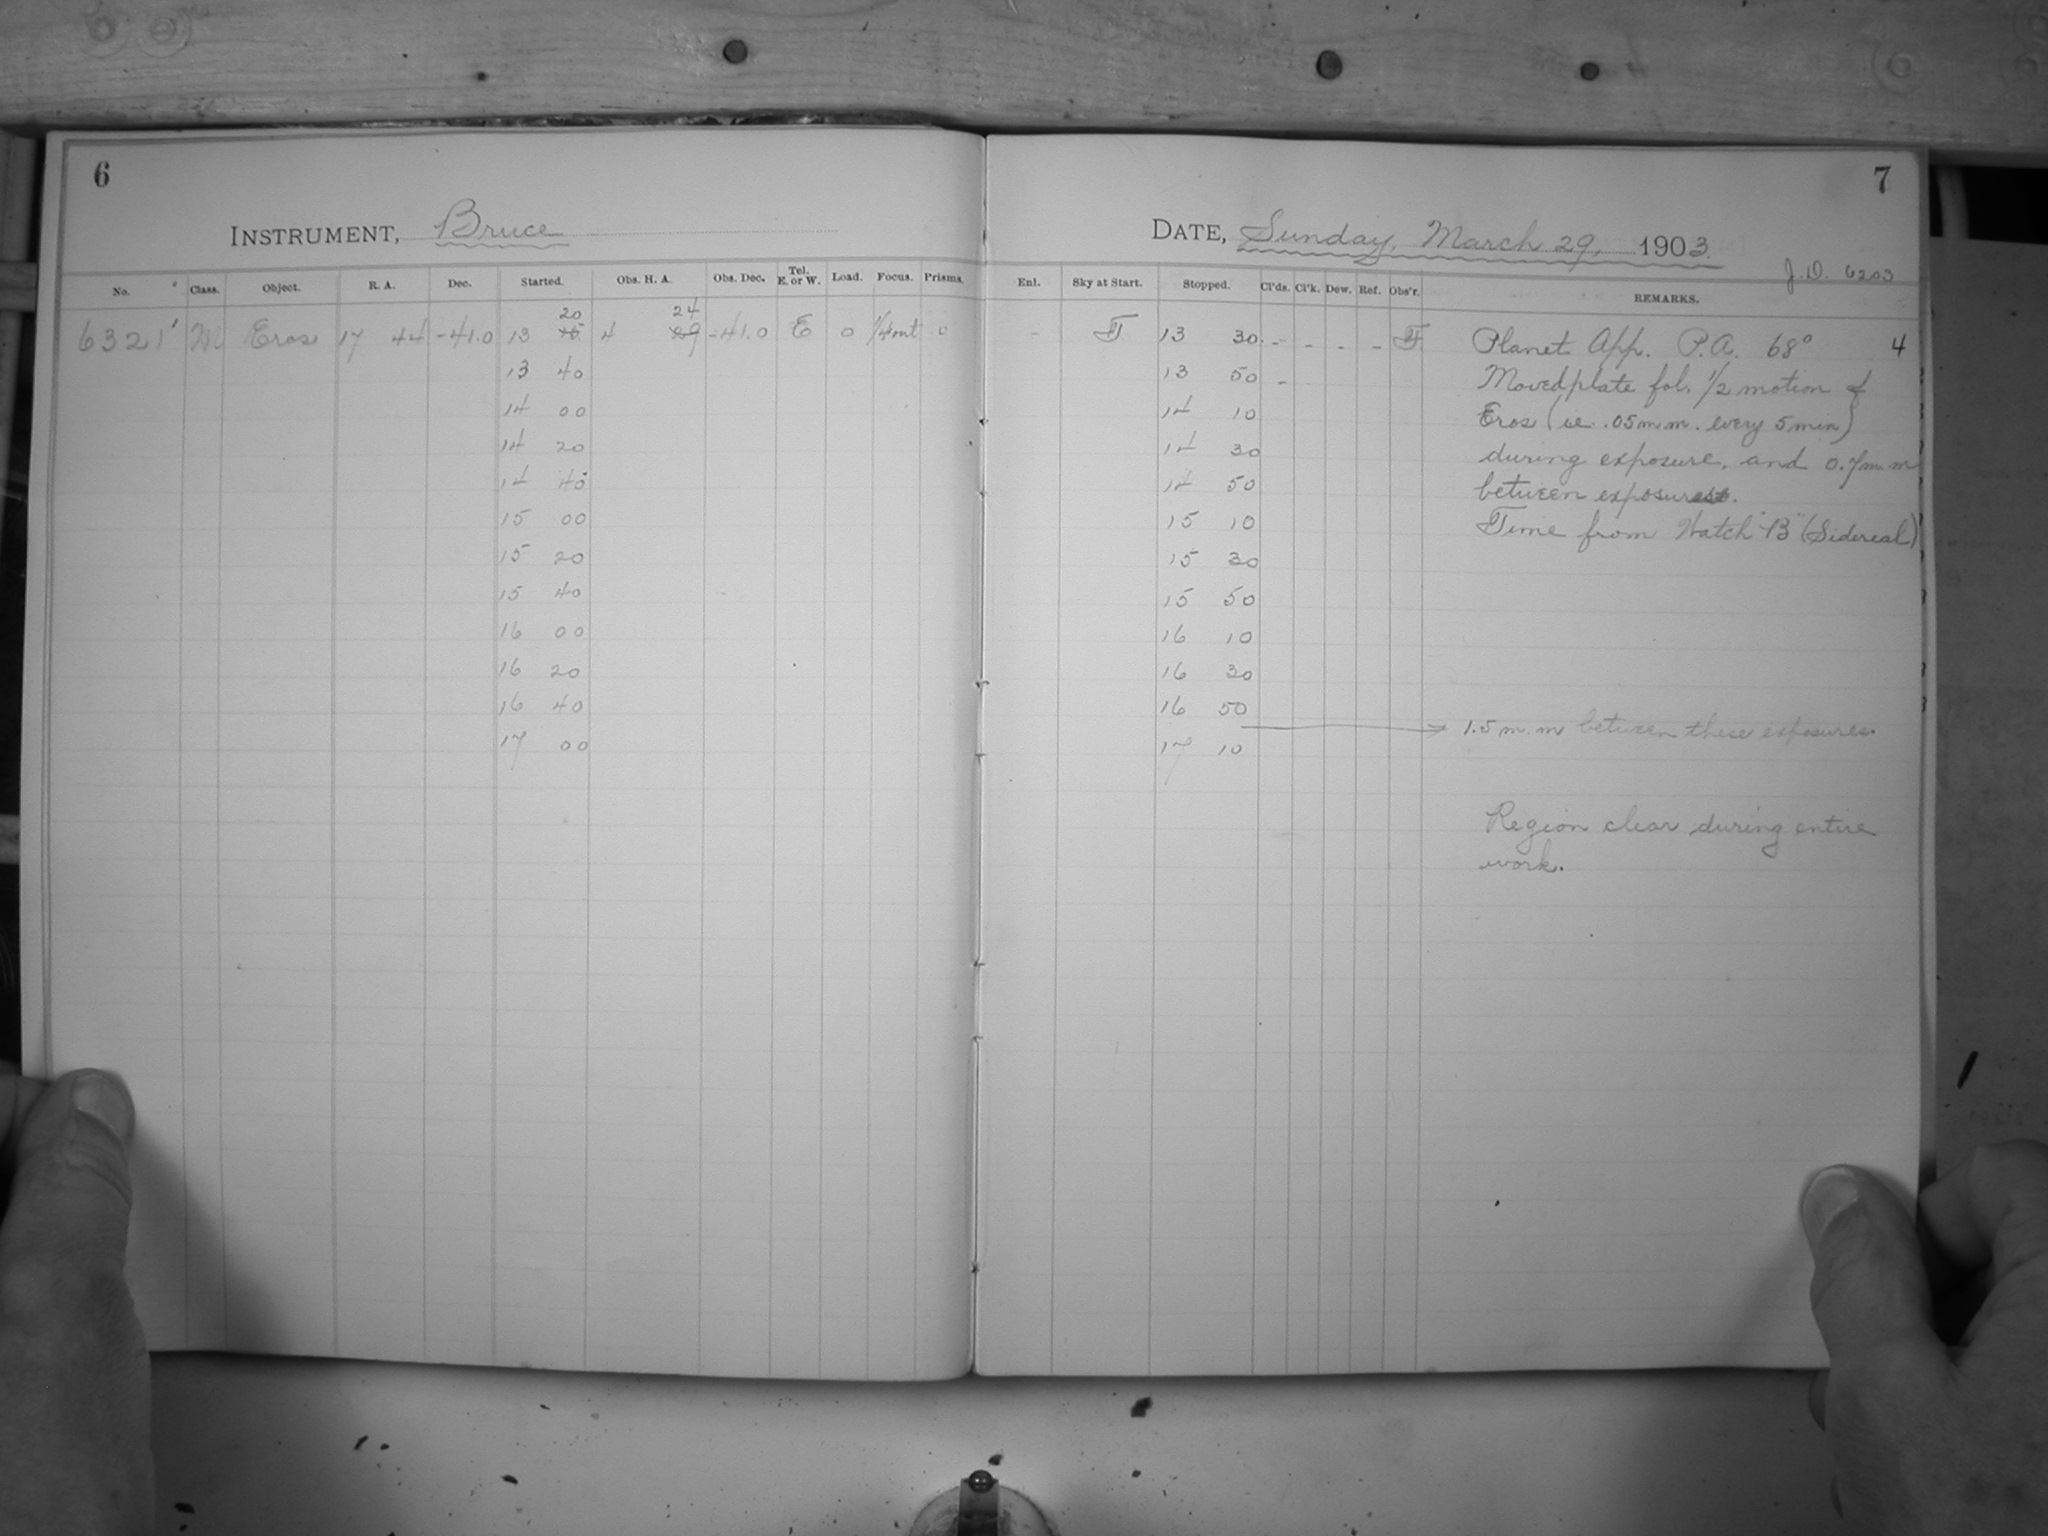 6
INSTRUMENT, Bruce
No. Class. Object. R. A. Dec. Started. Obs. H. A. Obs. Dec. Tel. E. or W. Load. Focus. Prisms.
20 24
6321 M Eros 17 44 -41.0 13 4 -41.0 E 0 0
13 40
14 00
14 20
14 40
15 00
15 20
15 40
16 00
16 20
16 40
17 00
7
DATE, Sunday, March 29, 1903
J.D. 6203
Enl. Sky at Start. Stopped. Cl'ds. Cl'k. Dew. Ref. Obs'r. REMARKS.
- 13 30 - - - - Planet App. P.A. 68° 4
13 50 - Moved plate fol. 1/2 motion of
14 10 Eros (ie. .05 m.m. every 5 min)
14 30 during exposure, and 0.7 m.m
14 50 between exposures.
15 10 Time from Watch "B" (Sidereal)
15 30
15 50
16 10
16 30
16 50
1.5 m.m between these exposures.
17 10
Region clear during entire
work.